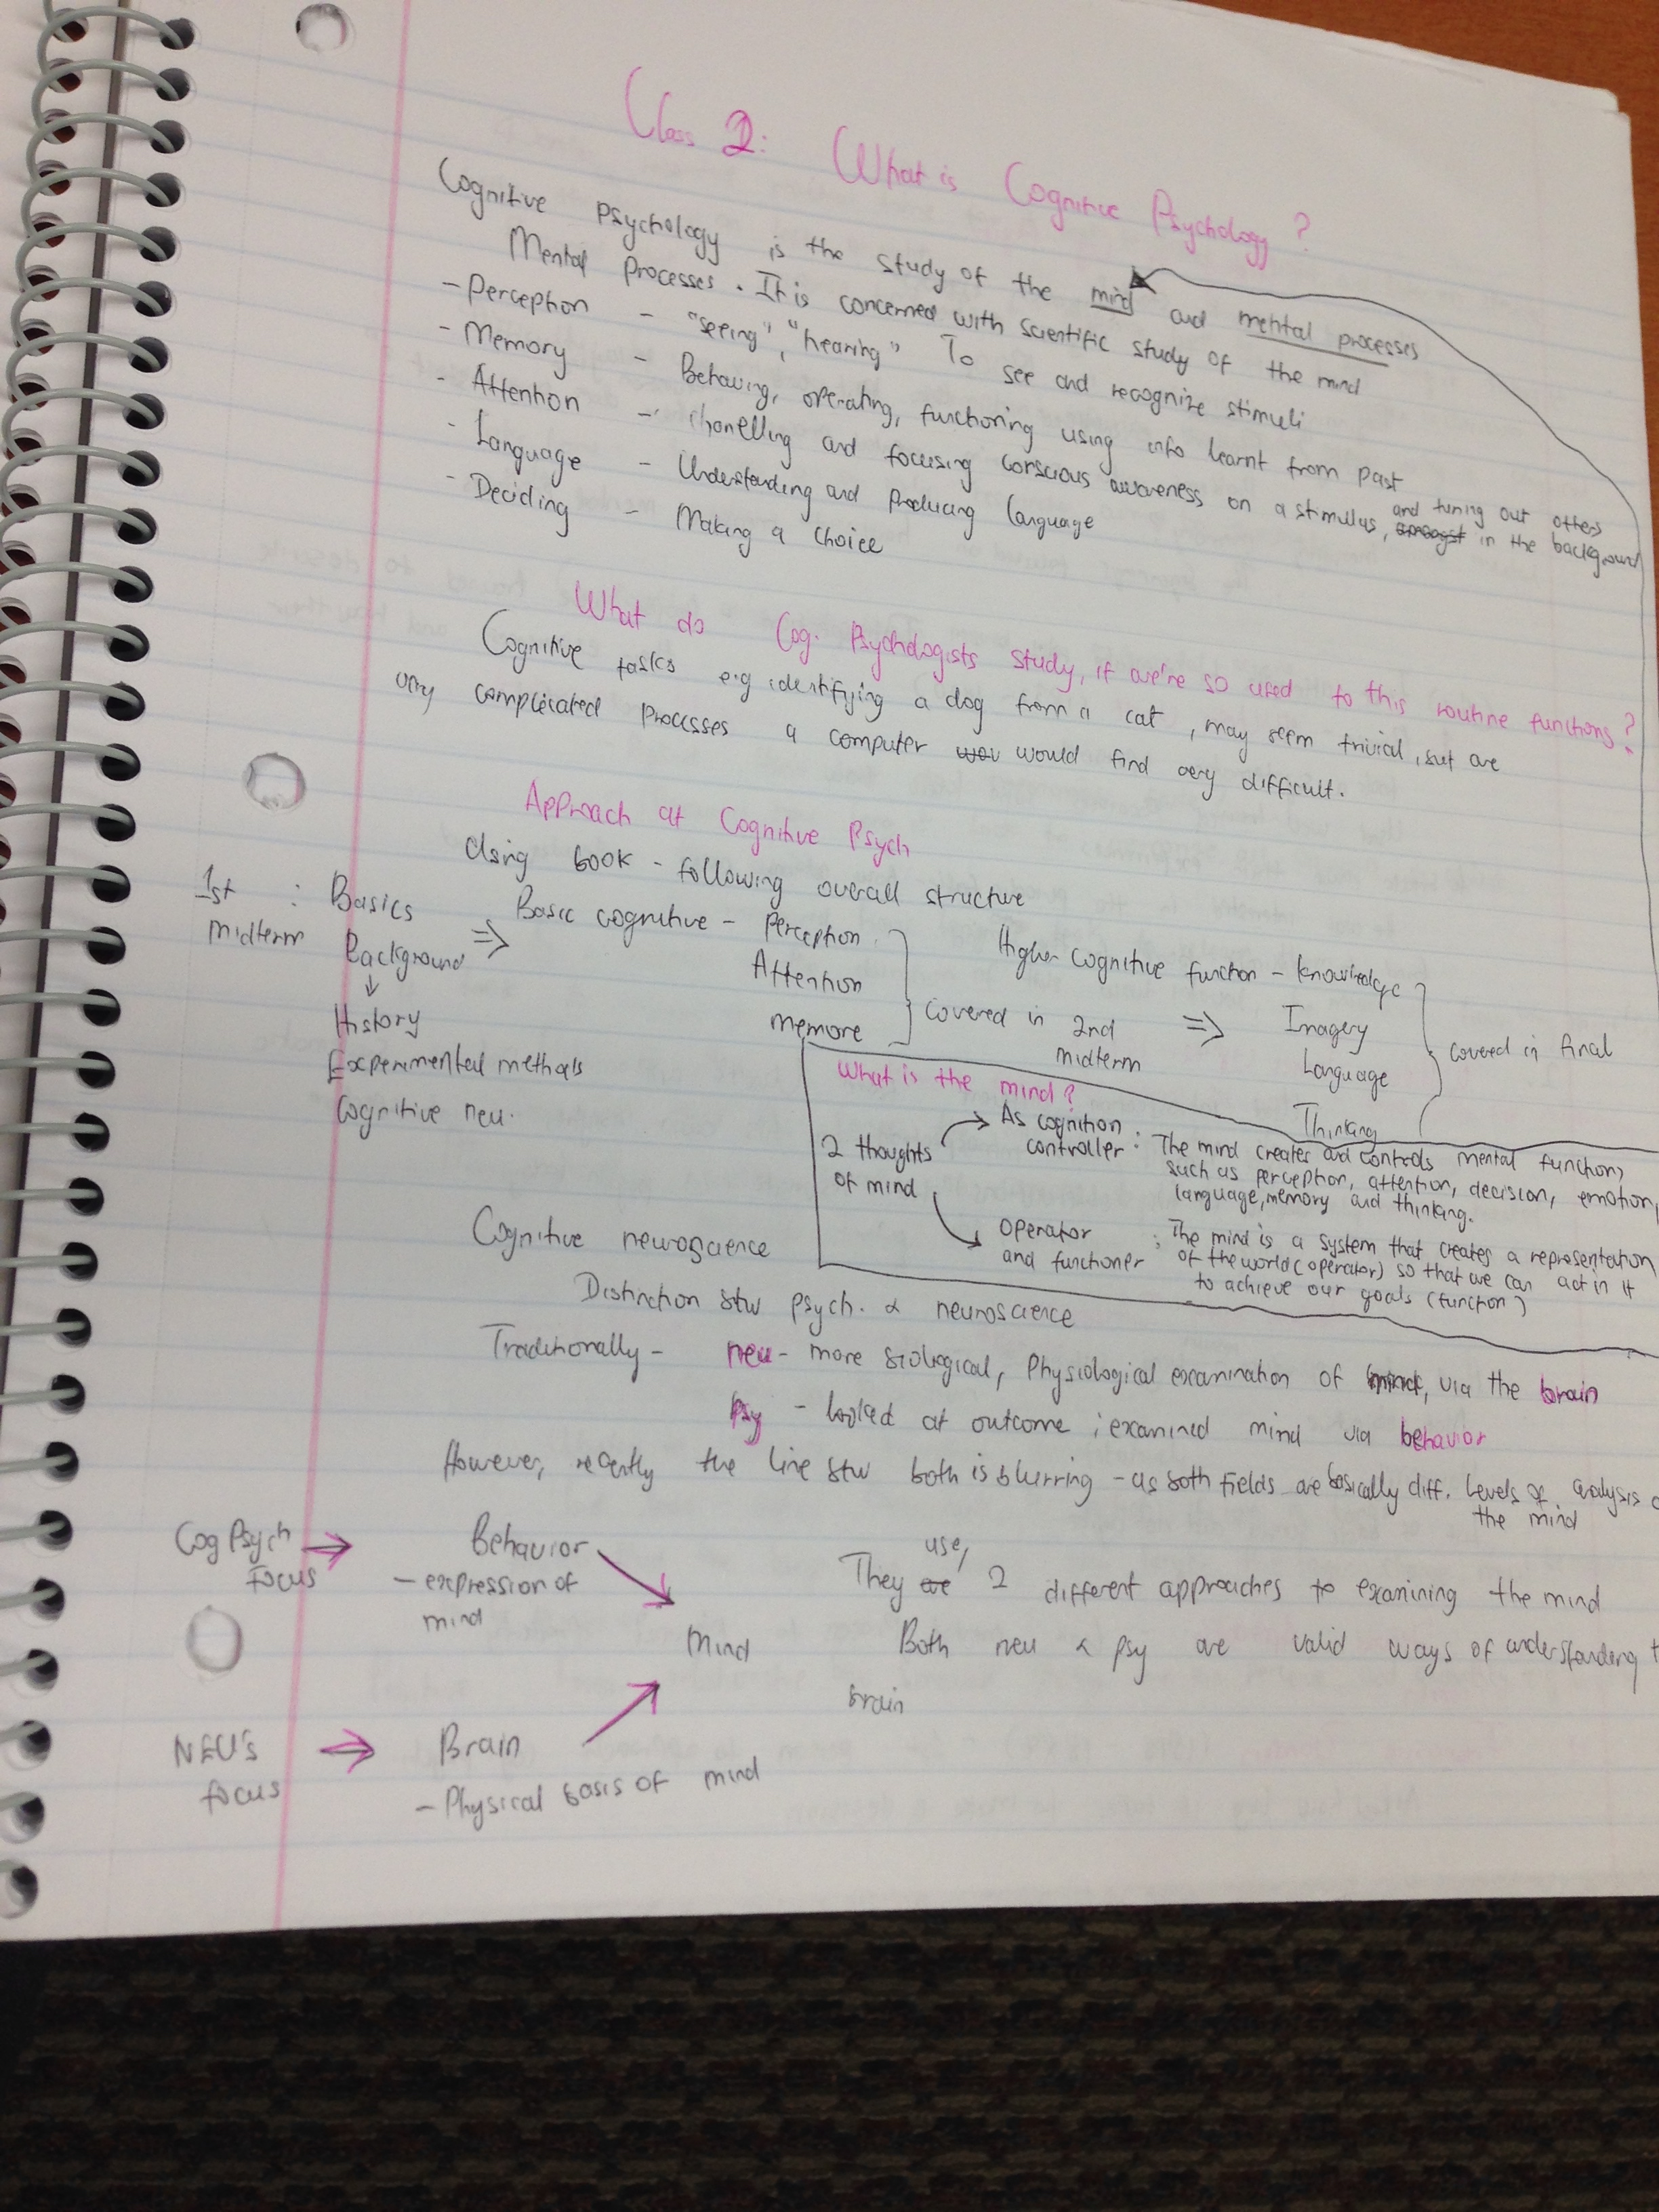 Class 2: What is Cognitive Psychology?
Cognitive psychology is the study of the mind and mental processes
Mental processes. It is concerned with scientific study of the mind
- Perception - "seeing", "hearing" To see and recognize stimuli
- Memory - Behaving, operating, functioning using info learnt from past
- Attention - chanelling and focusing conscious awareness on a stimulus, and tuning out others amongst in the background
- Language - Understanding and producing language
- Deciding - Making a choice
What do Cog. Psychologists study, if we're so used to this routine functions?
Cognitive tasks e.g identifying a dog from a cat, may seem trivial, but are
very complicated processes a computer would find very difficult.
Approach at Cognitive Psych
Using book - following overall structure
1st midterm : Basics
Background
↓
History
Experimental methods
Cognitive neu.
⇒ Basic cognitive - Perception
Attention
Memore
covered in 2nd midterm
⇒ Higher cognitive function - knowledge
Imagery
Language
Thinking
covered in final
What is the mind?
2 thoughts of mind
As cognition controller : The mind creates and controls mental functions
such as perception, attention, decision, emotion,
language, memory and thinking.
operator and functioner : The mind is a system that creates a representation
of the world (operator) so that we can act in it
to achieve our goals (function)
Cognitive neuroscience
Distinction btw psych. & neuroscience
Traditionally - neu - more biological, physiological examination of mind, via the brain
Psy - looked at outcome ; examined mind via behavior
However, recently the line btw both is blurring - as both fields are basically diff. levels of analysis
the mind
Cog Psych focus → Behavior
- expression of mind
Mind
NEU's focus → Brain
- Physical basis of mind
They are use, 2 different approaches to examining the mind
Both neu & psy are valid ways of understanding
brain